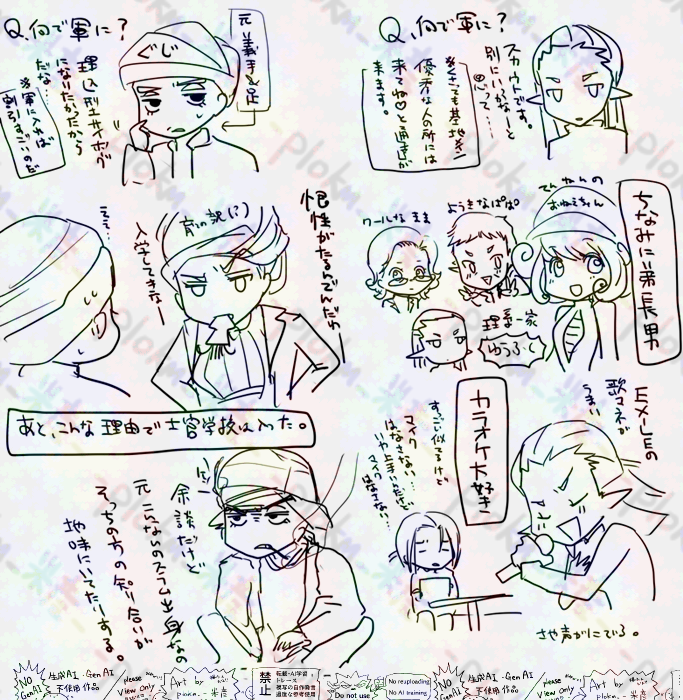 Q、何で軍に？
スカウトです。
別にいっかなーと
思って…
※とても基地外に
優秀な人の所には
来てね♡と通達が
来ます。
ちなみに弟長男
てんねんの
おねえちゃん
ようきなぱぱ
クールなまま
理系一家
ゆうふく
EXILEの
歌マネが
うまい
カラオケ大好き
すっごい似てるけど
マイク
はなさない…
いや上手いんだけど
マイク
はなさない…
さや声がにている。
Q、何で軍に？
ぐじ
元義手義足
埋込型サイボーグ
になりたかったから
だな…
※軍に入れば
割引すっごいのだ
根性がたるんでんだわー
育ての親(？)
入学してきなー
ええ…
あと、こんな理由で士官学校は入った。
余談だけど
元こんなのスラム出身なの
そっちの方の知り合いが
地味にいてたりする。
NO
GenAI
生成AI・GenAI
不使用作品
Please
View Only
Art by
plokm_
禁止
転載・AI学習
トレース
模写の自作発言
過度な参考使用
Do not use
No reuploading
No AI training